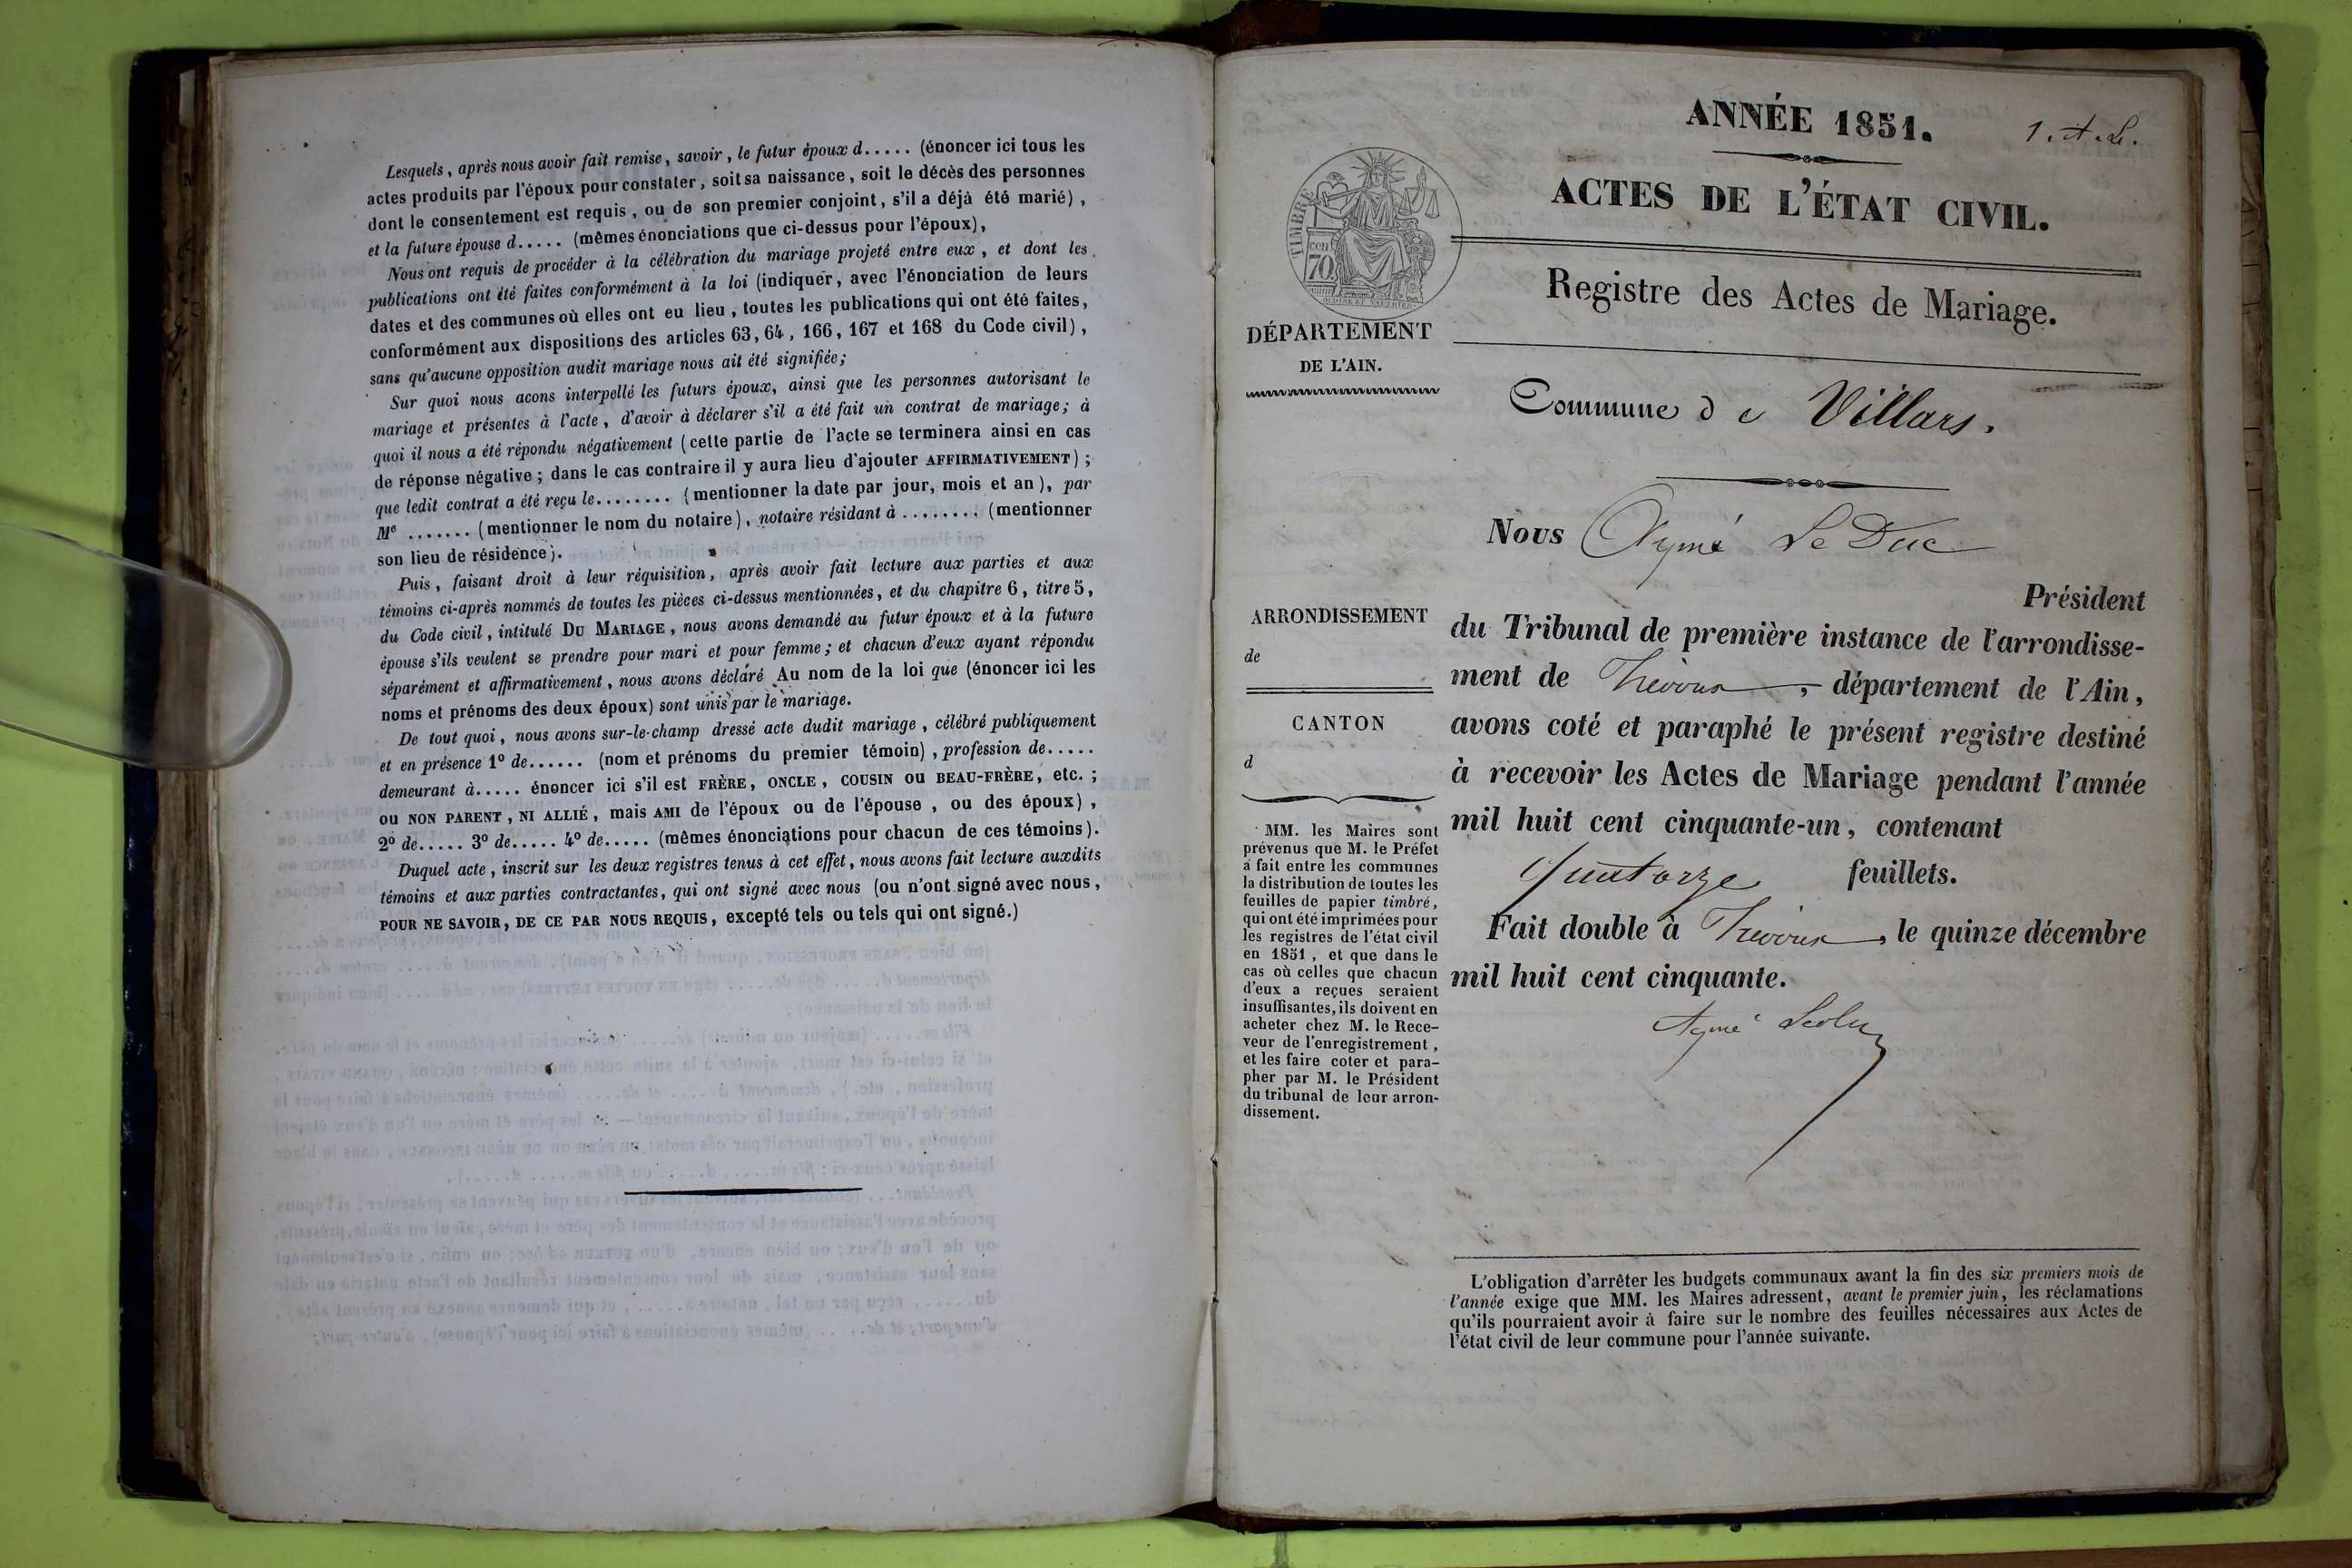 Lesquels, après nous avoir fait remise, savoir, le futur époux d..... (énoncer ici tous les
actes produits par l'époux pour constater, soit sa naissance, soit le décès des personnes
dont le consentement est requis, ou de son premier conjoint, s'il a déjà été marié),
et la future épouse d..... (mêmes énonciations que ci-dessus pour l'époux),
Nous ont requis de procéder à la célébration du mariage projeté entre eux, et dont les
publications ont été faites conformément à la loi (indiquer, avec l'énonciation de leurs
dates et des communes où elles ont eu lieu, toutes les publications qui ont été faites,
conformément aux dispositions des articles 63, 64, 166, 167 et 168 du Code civil),
sans qu'aucune opposition audit mariage nous ait été signifiée;
Sur quoi nous acons interpellé les futurs époux, ainsi que les personnes autorisant le
mariage et présentes à l'acte, d'avoir à déclarer s'il a été fait un contrat de mariage; à
quoi il nous a été répondu négativement (cette partie de l'acte se terminera ainsi en cas
de réponse négative; dans le cas contraire il y aura lieu d'ajouter AFFIRMATIVEMENT);
que ledit contrat a été reçu le........ (mentionner la date par jour, mois et an), par
Me ....... (mentionner le nom du notaire), notaire résidant à ........ (mentionner
son lieu de résidence).
Puis, faisant droit à leur réquisition, après avoir fait lecture aux parties et aux
témoins ci-après nommés de toutes les pièces ci-dessus mentionnées, et du chapitre 6, titre 5,
du Code civil, intitulé DU MARIAGE, nous avons demandé au futur époux et à la future
épouse s'ils veulent se prendre pour mari et pour femme; et chacun d'eux ayant répondu
séparément et affirmativement, nous avons déclaré Au nom de la loi que (énoncer ici les
noms et prénoms des deux époux) sont unis par le mariage.
De tout quoi, nous avons sur-le-champ dressé acte dudit mariage, célébré publiquement
et en présence 1º de...... (nom et prénoms du premier témoin), profession de.....
demeurant à..... énoncer ici s'il est FRÈRE, ONCLE, COUSIN OU BEAU-FRÈRE, etc.;
OU NON PARENT, NI ALLIÉ, mais AMI de l'époux ou de l'épouse, ou des époux),
2º de..... 3º de..... 4º de..... (mêmes énonciations pour chacun de ces témoins).
Duquel acte, inscrit sur les deux registres tenus à cet effet, nous avons fait lecture auxdits
témoins et aux parties contractantes, qui ont signé avec nous (ou n'ont signé avec nous,
POUR NE SAVOIR, DE CE PAR NOUS REQUIS, excepté tels ou tels qui ont signé.)
ANNÉE 1851.
1. A. L.
ACTES DE L'ÉTAT CIVIL.
Registre des Actes de Mariage.
TIMBRE
cen
70
DÉPARTEMENT
DE L'AIN.
Commune de Villars.
Nous Aymé Le Duc
Président
du Tribunal de première instance de l'arrondisse-
ment de Trévoux, département de l'Ain,
avons coté et paraphé le présent registre destiné
à recevoir les Actes de Mariage pendant l'année
mil huit cent cinquante-un, contenant
Quatorze feuillets.
Fait double à Trévoux, le quinze décembre
mil huit cent cinquante.
Aymé Leduc
ARRONDISSEMENT
de
CANTON
d
MM. les Maires sont
prévenus que M. le Préfet
a fait entre les communes
la distribution de toutes les
feuilles de papier timbré,
qui ont été imprimées pour
les registres de l'état civil
en 1851, et que dans le
cas où celles que chacun
d'eux a reçues seraient
insuffisantes, ils doivent en
acheter chez M. le Rece-
veur de l'enregistrement,
et les faire coter et para-
pher par M. le Président
du tribunal de leur arron-
dissement.
L'obligation d'arrêter les budgets communaux avant la fin des six premiers mois de
l'année exige que MM. les Maires adressent, avant le premier juin, les réclamations
qu'ils pourraient avoir à faire sur le nombre des feuilles nécessaires aux Actes de
l'état civil de leur commune pour l'année suivante.